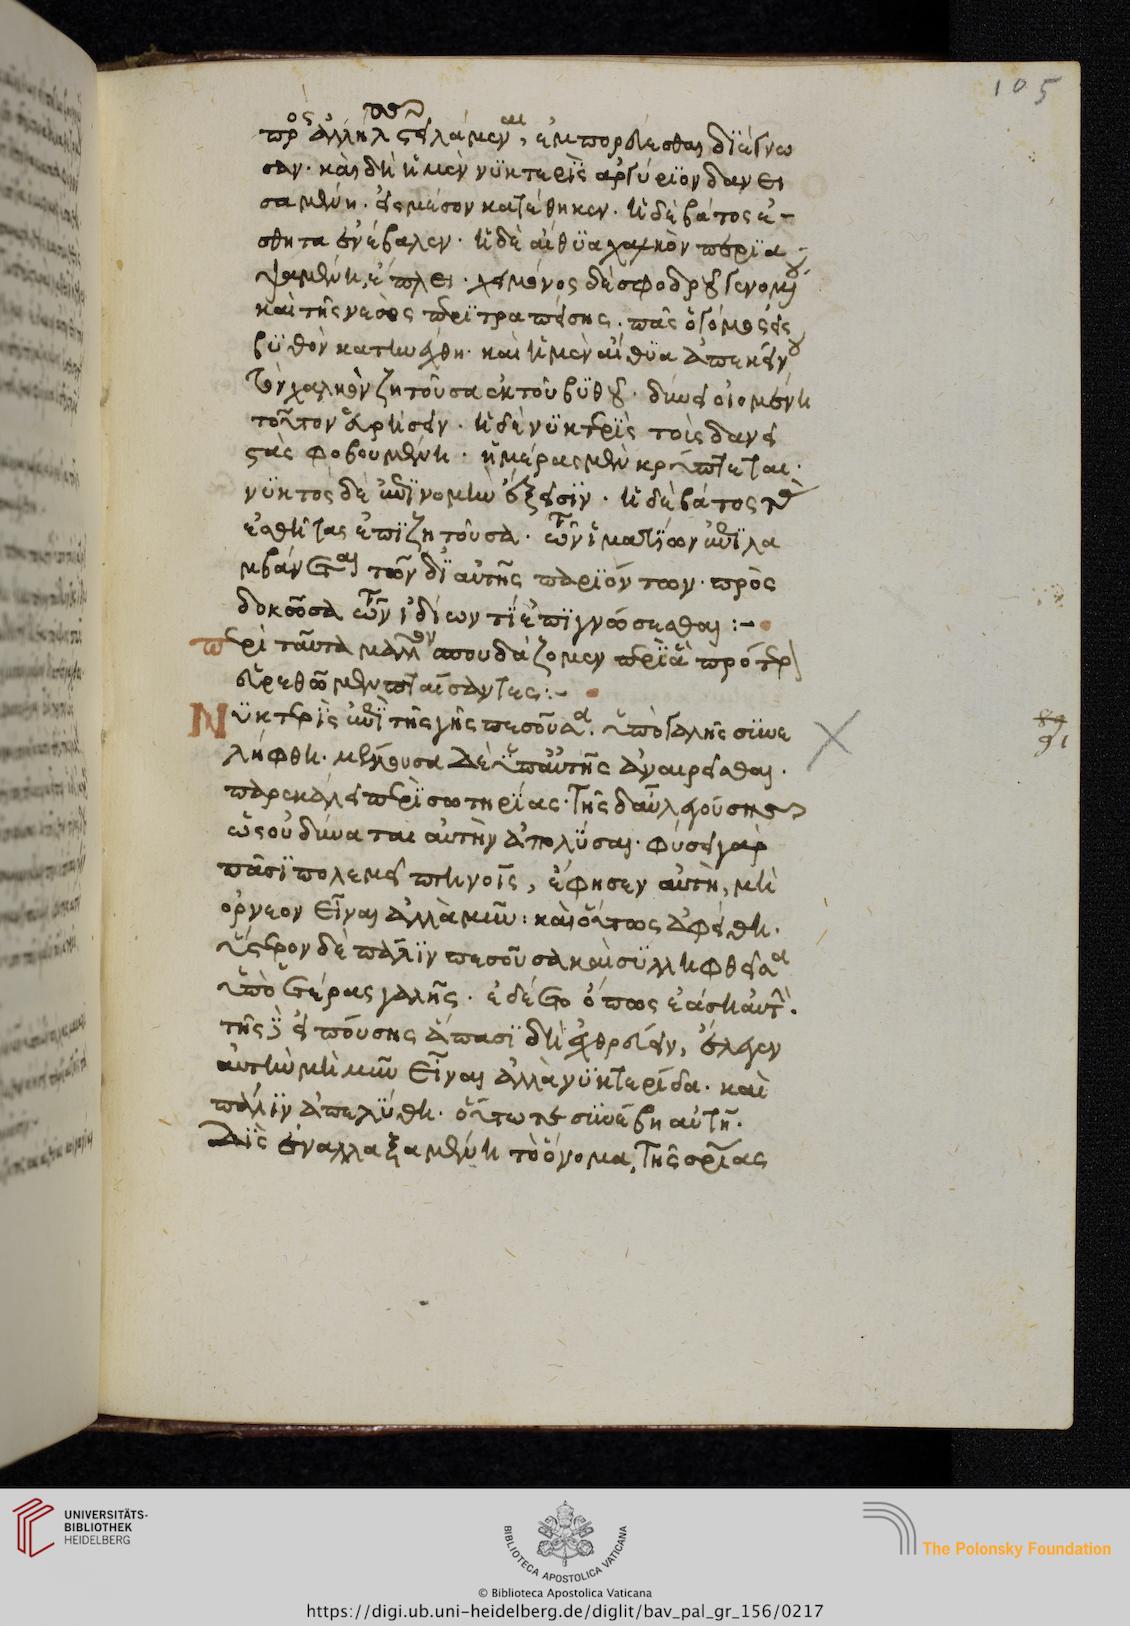 105
πρὸς ἀλλήλας στειλάμεναι, ἐμπορεύεσθαι διέγνω
σαν· καὶ δὴ ἡ μὲν νυκτερὶς ἀργύριον δανει
σαμένη· ἐς μέσον κατέθηκεν· ἡ δὲ βάτος ἐ-
σθῆτα ἐνέβαλεν· ἡ δὲ αἴθυια χαλκὸν
ἔπλει· χειμῶνος δὲ σφοδροῦ γενομένου
καὶ τῆς νεὼς περιτραπείσης· πᾶς ὁ γόμος εἰς
βυθὸν κατηνέχθη· καὶ ἡ μὲν αἴθυια
τὸν χαλκὸν ζητοῦσα ἐκ τοῦ βυθοῦ· δύνει οἰομένη
τοῦτον εὑρήσειν· ἡ δὲ νυκτερὶς τοὺς δανει
στὰς φοβουμένη· ἡμέρας μὲν κρύπτεται·
νυκτὸς δὲ ἐπὶ νομὴν ἔξεισιν· ἡ δὲ βάτος τὰς
ἐσθῆτας ἐπιζητοῦσα· τῶν ἱματίων ἐπιλα
μβάνεται τῶν δι' αὐτῆς παριόντων· προσ
δοκῶσα τῶν ἰδίων τι ἐπιγνώσεσθαι :-
περὶ ταῦτα μᾶλλον σπουδάζομεν περὶ ἃ πρότερον
εὑρεθῶμεν πταίσαντες :-
Νυκτερὶς ἐπὶ τῆς γῆς πεσοῦσα· ὑπὸ γαλῆς συνε
λήφθη· μέλλουσα δὲ ὑπ' αὐτῆς ἀναιρεῖσθαι·
παρεκάλει περὶ σωτηρίας· τῆς δ' αὖ λεγούσης
ὡς οὐ δύναται αὐτὴν ἀπολῦσαι· φύσει γὰρ
πᾶσι πολεμεῖ πτηνοῖς, ἔφησεν αὐτὴ, μὴ
ὄρνεον εἶναι ἀλλὰ μῦν: καὶ οὕτως ἀφείθη·
ὕστερον δὲ πάλιν πεσοῦσα καὶ συλληφθεῖσα
ὑπὸ ἑτέρας γαλῆς· ἐδέετο ὅπως ἐάσῃ αὐτήν·
τῆς δὲ εἰπούσης ἅπασι δὴ ἐχθρεύειν, ἔλεγεν
αὐτὴν μὴ μῦν εἶναι ἀλλὰ νυκτερίδα· καὶ
πάλιν ἀπελύθη· οὕτω τε συνέβη αὐτῇ·
δὶς ἐναλλαξαμένη τὸ ὄνομα, τῆς σωτηρίας
89
91
UNIVERSITÄTS-
BIBLIOTHEK
HEIDELBERG
BIBLIOTECA APOSTOLICA VATICANA
The Polonsky Foundation
© Biblioteca Apostolica Vaticana
https://digi.ub.uni-heidelberg.de/diglit/bav_pal_gr_156/0217